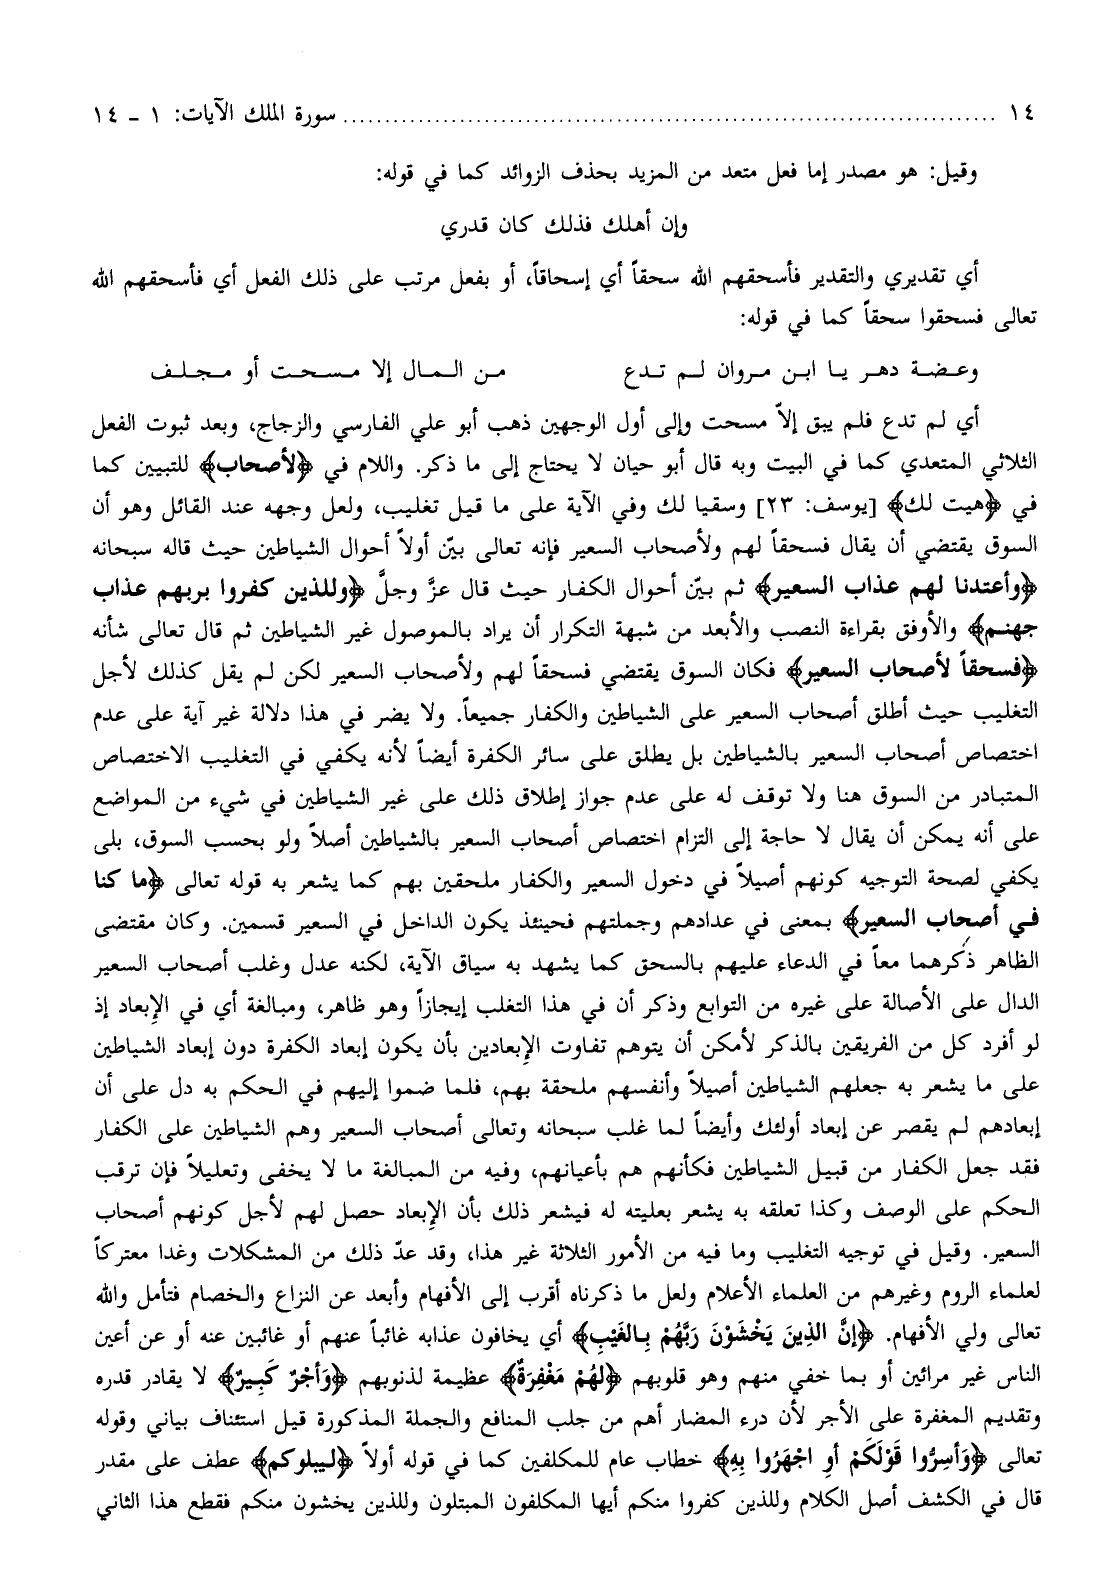 ١٤ ............................................................................ سورة الملك الآيات: ١ - ١٤
وقيل: هو مصدر إما فعل متعد من المزيد بحذف الزوائد كما في قوله:
وإن أهلك فذلك كان قدري
أي تقديري والتقدير فأسحقهم الله سحقاً أي إسحاقاً، أو بفعل مرتب على ذلك الفعل أي فأسحقهم الله
تعالى فسحقوا سحقاً كما في قوله:
وعـضـة دهـر يـا ابـن مـروان لـم تـدع من الـمـال إلا مـسـحـت أو مـجـلـف
أي لم تدع فلم يبق إلاّ مسحت وإلى أول الوجهين ذهب أبو علي الفارسي والزجاج، وبعد ثبوت الفعل
الثلاثي المتعدي كما في البيت وبه قال أبو حيان لا يحتاج إلى ما ذكر. واللام في ﴿لأصحاب﴾ للتبيين كما
في ﴿هيت لك﴾ [يوسف: ٢٣] وسقيا لك وفي الآية على ما قيل تغليب، ولعل وجهه عند القائل وهو أن
السوق يقتضي أن يقال فسحقاً لهم ولأصحاب السعير فإنه تعالى بيّن أولاً أحوال الشياطين حيث قاله سبحانه
﴿وأعتدنا لهم عذاب السعير﴾ ثم بيّن أحوال الكفار حيث قال عزَّ وجلَّ ﴿وللذين كفروا بربهم عذاب
جهنم﴾ والأوفق بقراءة النصب والأبعد من شبهة التكرار أن يراد بالموصول غير الشياطين ثم قال تعالى شأنه
﴿فسحقاً لأصحاب السعير﴾ فكان السوق يقتضي فسحقاً لهم ولأصحاب السعير لكن لم يقل كذلك لأجل
التغليب حيث أطلق أصحاب السعير على الشياطين والكفار جميعاً. ولا يضر في هذا دلالة غير آية على عدم
اختصاص أصحاب السعير بالشياطين بل يطلق على سائر الكفرة أيضاً لأنه يكفي في التغليب الاختصاص
المتبادر من السوق هنا ولا توقف له على عدم جواز إطلاق ذلك على غير الشياطين في شيء من المواضع
على أنه يمكن أن يقال لا حاجة إلى التزام اختصاص أصحاب السعير بالشياطين أصلاً ولو بحسب السوق، بلى
يكفي لصحة التوجيه كونهم أصيلاً في دخول السعير والكفار ملحقين بهم كما يشعر به قوله تعالى ﴿ما كنا
في أصحاب السعير﴾ بمعنى في عدادهم وجملتهم فحينئذ يكون الداخل في السعير قسمين. وكان مقتضى
الظاهر ذكرهما معاً في الدعاء عليهم بالسحق كما يشهد به سياق الآية، لكنه عدل وغلب أصحاب السعير
الدال على الأصالة على غيره من التوابع وذكر أن في هذا التغلب إيجازاً وهو ظاهر، ومبالغة أي في الإبعاد إذ
لو أفرد كل من الفريقين بالذكر لأمكن أن يتوهم تفاوت الإبعادين بأن يكون إبعاد الكفرة دون إبعاد الشياطين
على ما يشعر به جعلهم الشياطين أصيلاً وأنفسهم ملحقة بهم، فلما ضموا إليهم في الحكم به دل على أن
إبعادهم لم يقصر عن إبعاد أولئك وأيضاً لما غلب سبحانه وتعالى أصحاب السعير وهم الشياطين على الكفار
فقد جعل الكفار من قبيل الشياطين فكأنهم هم بأعيانهم، وفيه من المبالغة ما لا يخفى وتعليلاً فإن ترقب
الحكم على الوصف وكذا تعلقه به يشعر بعليته له فيشعر ذلك بأن الإبعاد حصل لهم لأجل كونهم أصحاب
السعير. وقيل في توجيه التغليب وما فيه من الأمور الثلاثة غير هذا، وقد عدّ ذلك من المشكلات وغدا معتركاً
لعلماء الروم وغيرهم من العلماء الأعلام ولعل ما ذكرناه أقرب إلى الأفهام وأبعد عن النزاع والخصام فتأمل والله
تعالى ولي الأفهام. ﴿إِنَّ الذِينَ يَخْشَوْنَ رَبَّهُمْ بِالغَيْبِ﴾ أي يخافون عذابه غائباً عنهم أو غائبين عنه أو عن أعين
الناس غير مرائين أو بما خفي منهم وهو قلوبهم ﴿لَهُمْ مَغْفِرَةٌ﴾ عظيمة لذنوبهم ﴿وَأجْرٌ كَبِيرٌ﴾ لا يقادر قدره
وتقديم المغفرة على الأجر لأن درء المضار أهم من جلب المنافع والجملة المذكورة قيل استئناف بياني وقوله
تعالى ﴿وَأسِرُّوا قَوْلَكُمْ أوِ اجْهَرُوا بِهِ﴾ خطاب عام للمكلفين كما في قوله أولاً ﴿ليبلوكم﴾ عطف على مقدر
قال في الكشف أصل الكلام وللذين كفروا منكم أيها المكلفون المبتلون وللذين يخشون منكم فقطع هذا الثاني